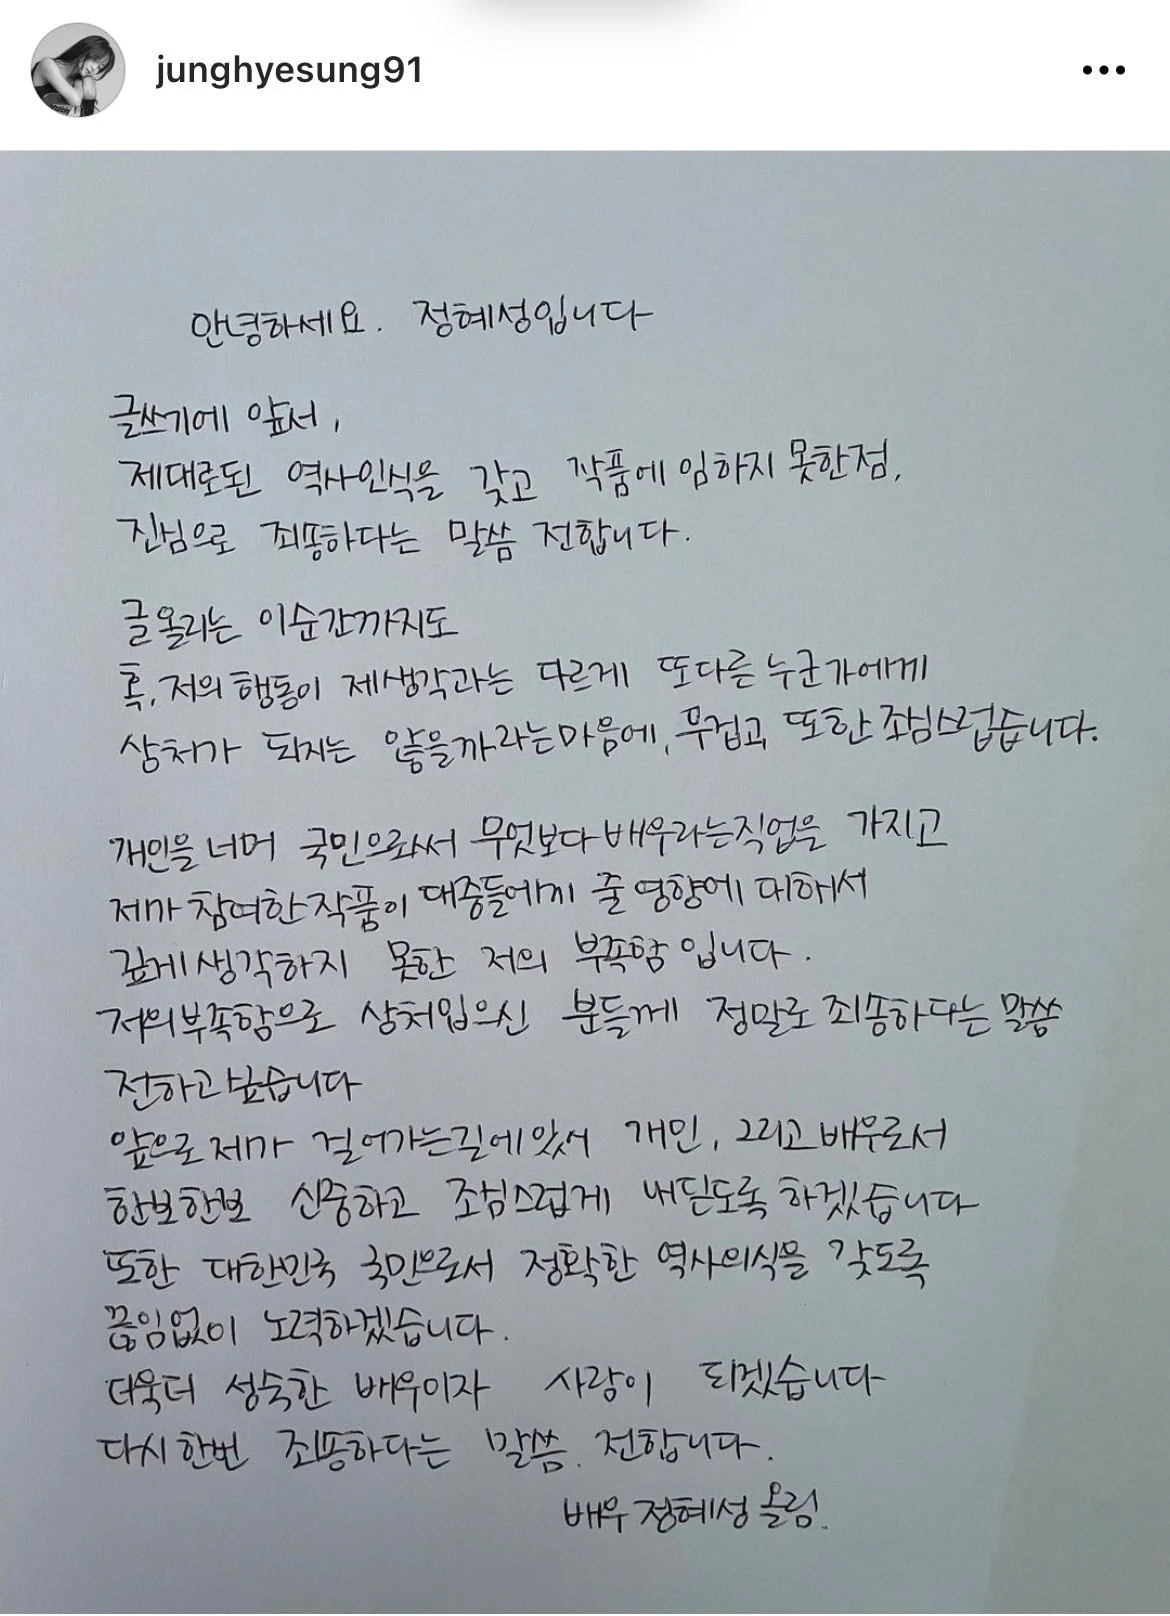 junghyesung91
안녕하세요. 정혜성입니다
글쓰기에 앞서,
제대로된 역사인식을 갖고 작품에 임하지 못한점,
진심으로 죄송하다는 말씀 전합니다.
글올리는 이순간까지도
혹, 저의 행동이 제생각과는 다르게 또다른 누군가에게
상처가 되지는 않을까라는마음에, 무겁고 또한 조심스럽습니다.
개인을 너머 국민으로써 무엇보다 배우라는직업을 가지고
제가 참여한 작품이 대중들에게 줄 영향에 대해서
깊게 생각하지 못한 저의 부족함 입니다.
저의부족함으로 상처입으신 분들께 정말로 죄송하다는 말씀
전하고싶습니다
앞으로 제가 걸어가는길에있서 개인, 그리고 배우로서
한보한보 신중하고 조심스럽게 내딛도록 하겠습니다
또한 대한민국 국민으로서 정확한 역사의식을 갖도록
끊임없이 노력하겠습니다.
더욱더 성숙한 배우이자 사람이 되겠습니다
다시한번 죄송하다는 말씀. 전합니다.
배우 정혜성 올림.